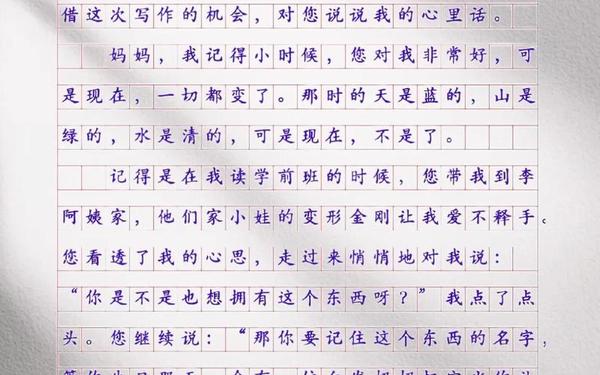 借这次写作的机会，对您说说我的心里话。
妈妈，我记得小时候，您对我非常好，可
是现在，一切都变了。那时的天是蓝的，山是
绿的，水是清的，可是现在，不是了。
记得是在我读学前班的时候，您带我到李
阿姨家，他们家小娃的变形金刚让我爱不释手。
您看透了我的心思，走过来悄悄地对我说：
“你是不是也想拥有这个东西呀？”我点了点
头。您继续说：“那你要记住这个东西的名字，